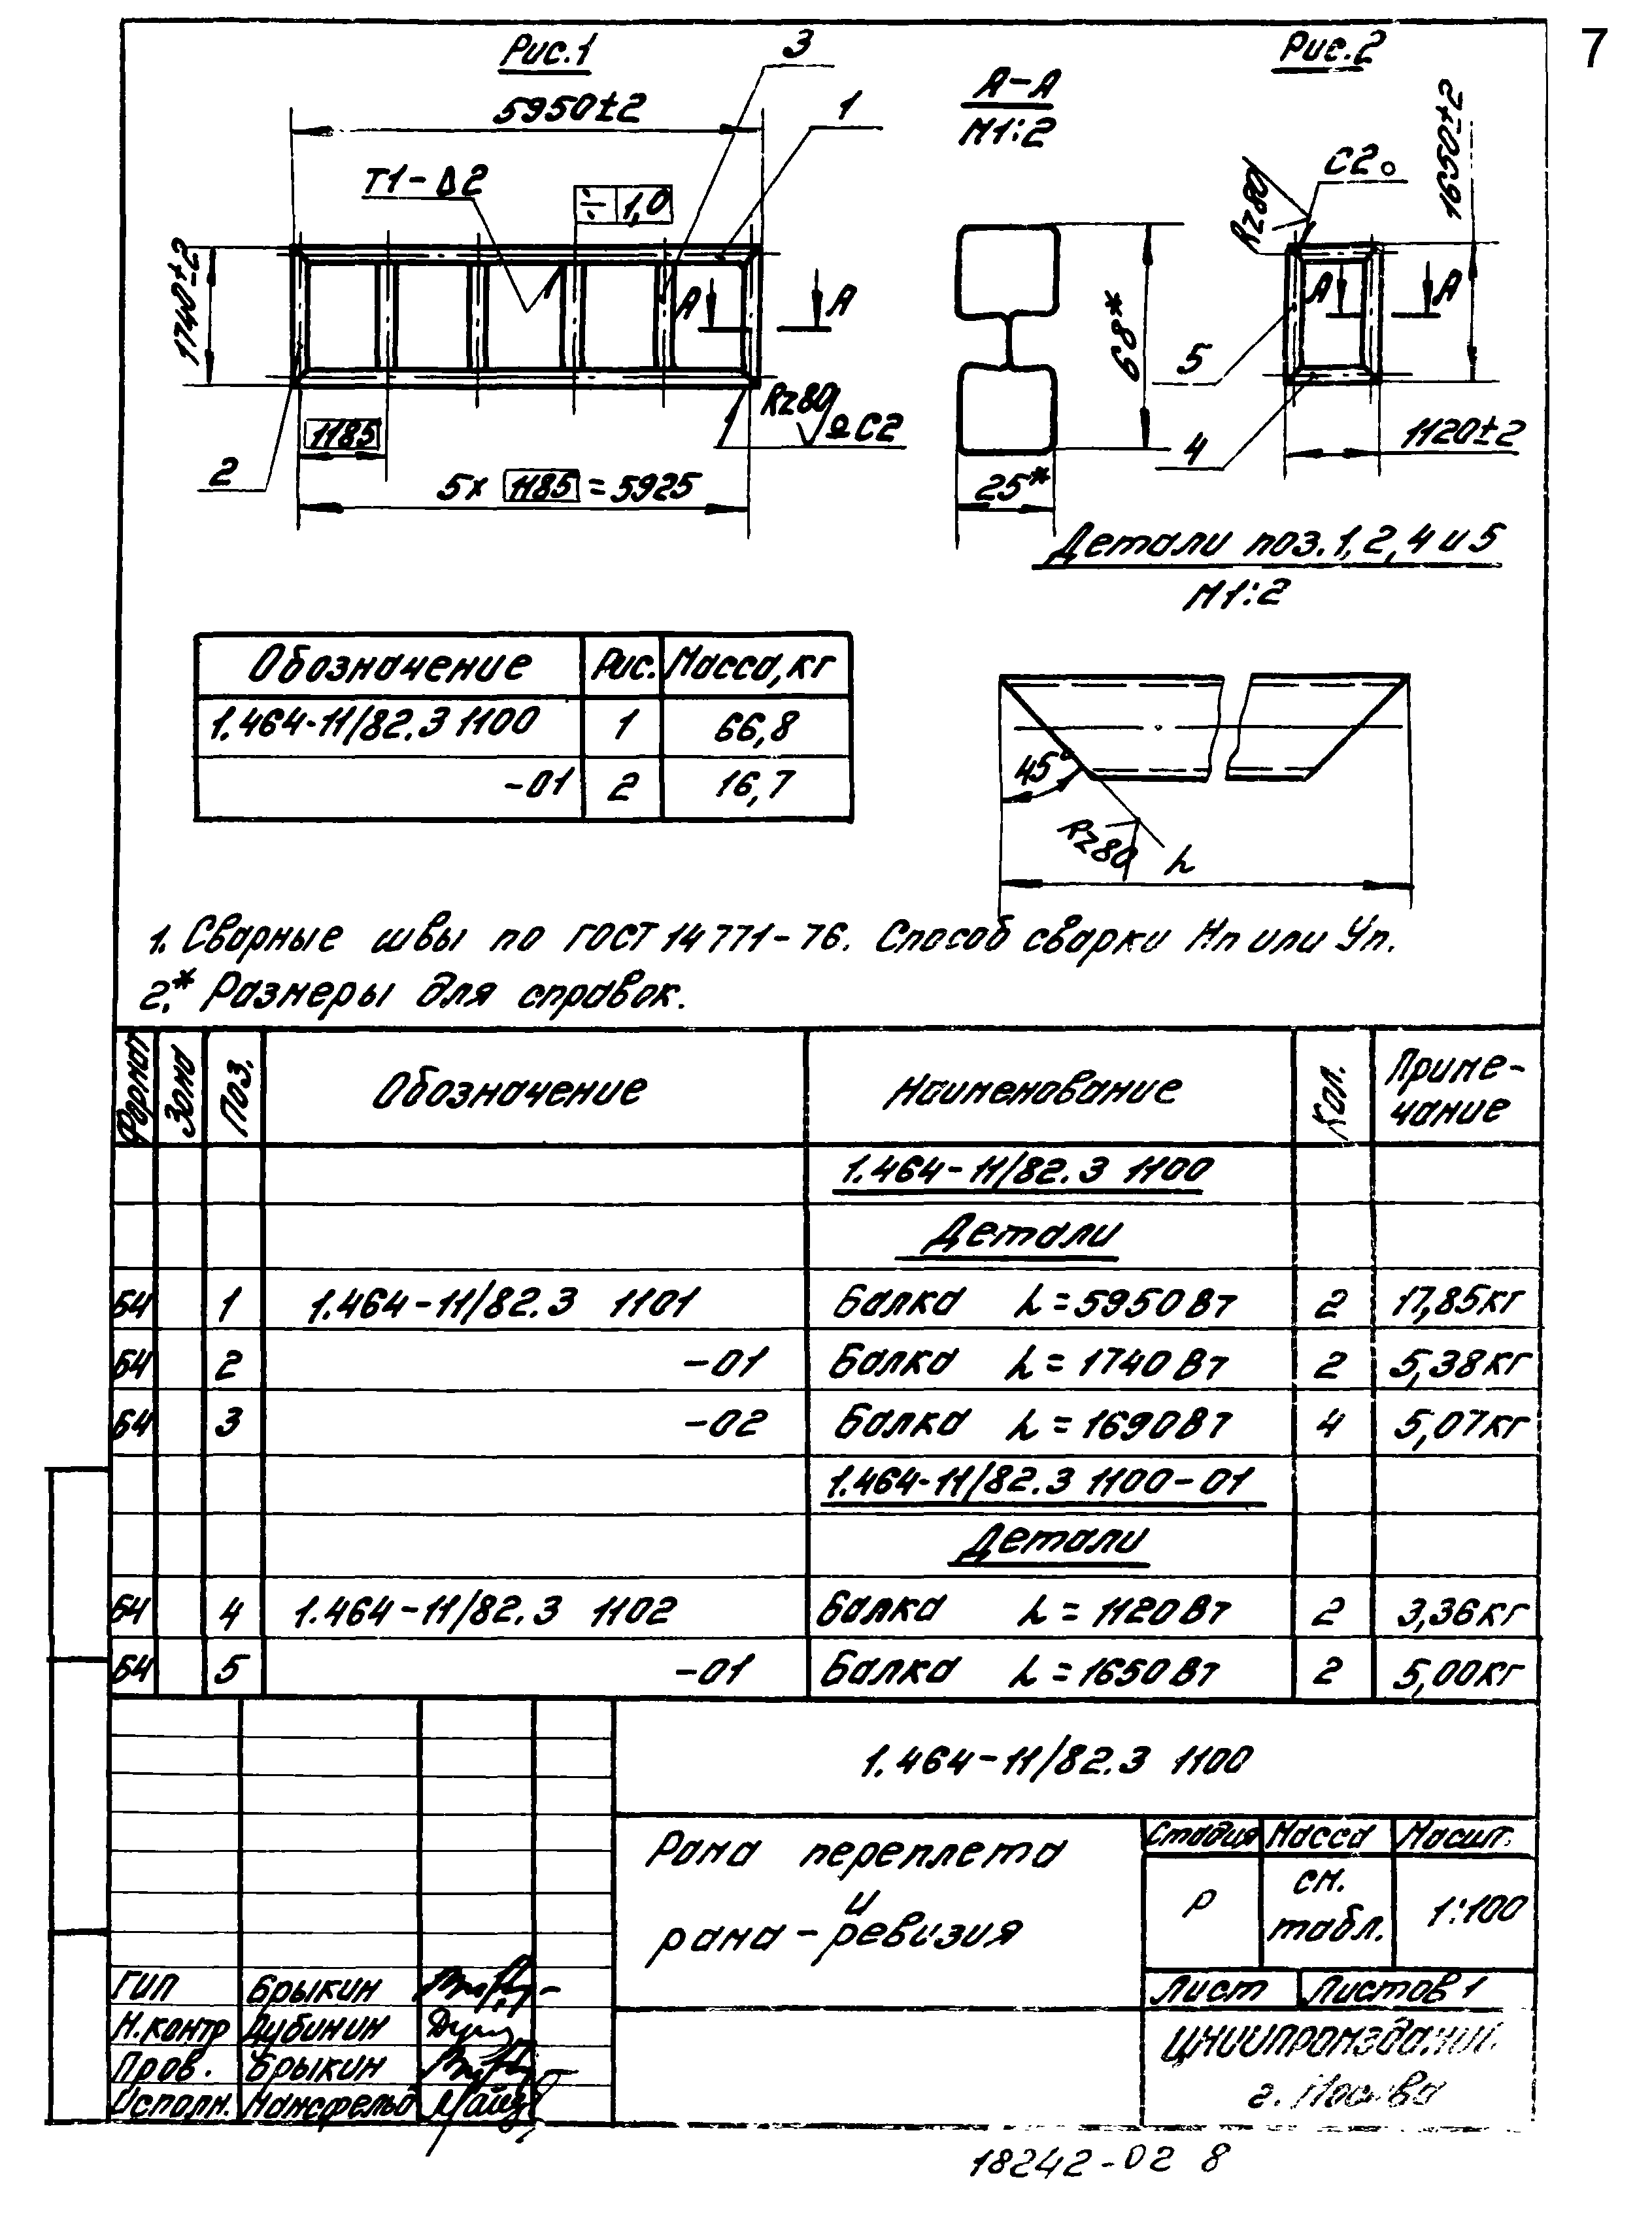 7
Рис.1
5950±2
3
1
Т1-Δ2
÷ 1,0
1740±2
А
А
1185
2
5х 1185 = 5925
Rz80
С2
А-А
М1:2
68*
25*
Рис.2
Rz80
С2
1650±2
А
А
5
4
1120±2
Детали поз.1,2,4 и 5
М1:2
45°
Rz80
L
Обозначение Рис. Масса,кг
1.464-11/82.3 1100 1 66,8
-01 2 16,7
1. Сварные швы по ГОСТ 14771-76. Способ сварки Ип или Уп.
2.* Размеры для справок.
Формат Зона Поз. Обозначение Наименование Кол. Приме-
чание
1.464-11/82.3 1100
Детали
БЧ 1 1.464-11/82.3 1101 Балка L=5950Вт 2 17,85кг
БЧ 2 -01 Балка L=1740Вт 2 5,38кг
БЧ 3 -02 Балка L=1690Вт 4 5,07кг
1.464-11/82.3 1100-01
Детали
БЧ 4 1.464-11/82.3 1102 Балка L=1120Вт 2 3,36кг
БЧ 5 -01 Балка L=1650Вт 2 5,00кг
1.464-11/82.3 1100
Рама переплета
и
рама-ревизия
Стадия Масса Масшт.
Р см.
табл. 1:100
Лист Листов 1
ГИП Брыкин
Н.контр Дубинин
Пров. Брыкин
Исполн. Мансфельд
ЦНИИпромзданий
г. Москва
18242-02 8